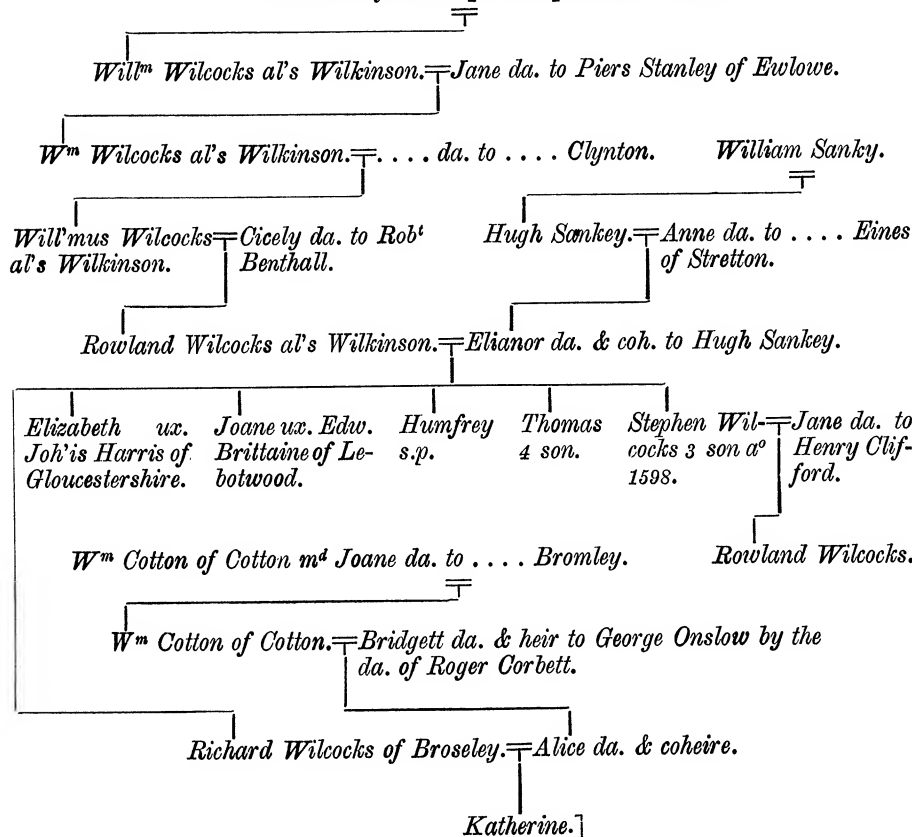 Willᵐ Wilcocks al's Wilkinson. Jane da. to Piers Stanley of Ewlowe.
Wᵐ Wilcocks al's Wilkinson. . . . . da. to . . . . Clynton. William Sanky.
Will'mus Wilcocks al's Wilkinson.
Cicely da. to Robᵗ Benthall.
Hugh Sankey. Anne da. to . . . . Eines of Stretton.
Rowland Wilcocks al's Wilkinson. Elianor da. & coh. to Hugh Sankey.
Elizabeth ux.
Joh'is Harris of
Gloucestershire.
Joane ux. Edw.
Brittaine of Le-
botwood.
Humfrey
s.p.
Thomas
4 son.
Stephen Wil-
cocks 3 son aº
1598.
Jane da. to
Henry Clif-
ford.
Rowland Wilcocks.
Wᵐ Cotton of Cotton mᵈ Joane da. to . . . . Bromley.
Wᵐ Cotton of Cotton. Bridgett da. & heir to George Onslow by the
da. of Roger Corbett.
Richard Wilcocks of Broseley. Alice da. & coheire.
Katherine.]